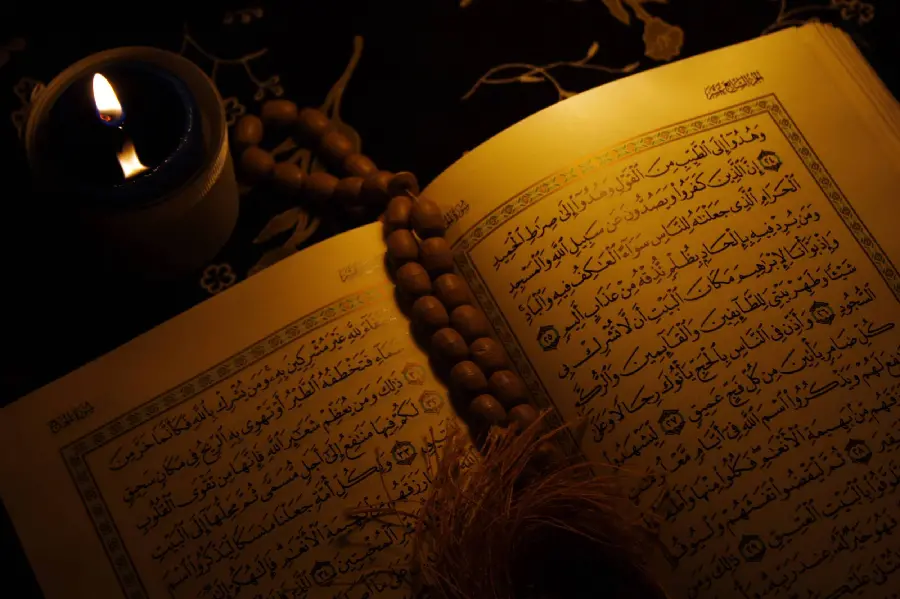 الجزء السابع عشر
وَهُدُوٓا۟ إِلَى ٱلطَّيِّبِ مِنَ ٱلْقَوْلِ وَهُدُوٓا۟ إِلَىٰ صِرَٰطِ ٱلْحَمِيدِ ٢٤
إِنَّ ٱلَّذِينَ كَفَرُوا۟ وَيَصُدُّونَ عَن سَبِيلِ ٱللَّهِ وَٱلْمَسْجِدِ
ٱلْحَرَامِ ٱلَّذِى جَعَلْنَٰهُ لِلنَّاسِ سَوَآءً ٱلْعَٰكِفُ فِيهِ وَٱلْبَادِ
وَمَن يُرِدْ فِيهِ بِإِلْحَادٍۭ بِظُلْمٍ نُّذِقْهُ مِنْ عَذَابٍ أَلِيمٍ ٢٥
وَإِذْ بَوَّأْنَا لِإِبْرَٰهِيمَ مَكَانَ ٱلْبَيْتِ أَن لَّا تُشْرِكْ بِى
شَيْـًٔا وَطَهِّرْ بَيْتِىَ لِلطَّآئِفِينَ وَٱلْقَآئِمِينَ وَٱلرُّكَّعِ
ٱلسُّجُودِ ٢٦ وَأَذِّن فِى ٱلنَّاسِ بِٱلْحَجِّ يَأْتُوكَ رِجَالًا وَعَلَىٰ
كُلِّ ضَامِرٍ يَأْتِينَ مِن كُلِّ فَجٍّ عَمِيقٍ ٢٧ لِّيَشْهَدُوا۟
لَهُمْ وَيَذْكُرُوا۟ ٱسْمَ ٱللَّهِ فِىٓ أَيَّامٍ
مِّنۢ بَهِيمَةِ ٱلْأَنْعَٰمِ فَكُلُوا۟ مِنْهَا
٢٨ ثُمَّ لْيَقْضُوا۟ تَفَثَهُمْ وَلْيُوفُوا۟
بِٱلْبَيْتِ ٱلْعَتِيقِ ٢٩ ذَٰلِكَ وَمَن
فَهُوَ خَيْرٌ لَّهُۥ عِندَ رَبِّهِۦ
سورة الحج
لِلَّهِ غَيْرَ مُشْرِكِينَ بِهِۦ وَمَن يُشْرِكْ بِٱللَّهِ فَكَأَنَّمَا خَرَّ مِنَ
فَتَخْطَفُهُ ٱلطَّيْرُ أَوْ تَهْوِى بِهِ ٱلرِّيحُ فِى مَكَانٍ سَحِيقٍ
ذَٰلِكَ وَمَن يُعَظِّمْ شَعَٰٓئِرَ ٱللَّهِ فَإِنَّهَا مِن تَقْوَى ٱلْقُلُوبِ
لَكُمْ فِيهَا مَنَٰفِعُ إِلَىٰٓ أَجَلٍ مُّسَمًّى ثُمَّ مَحِلُّهَآ إِلَى ٱلْبَيْتِ
وَلِكُلِّ أُمَّةٍ جَعَلْنَا مَنسَكًا لِّيَذْكُرُوا۟ ٱسْمَ
ٱلْأَنْعَٰمِ فَإِلَٰهُكُمْ
ٱلْمُخْبِتِينَ ٣٤